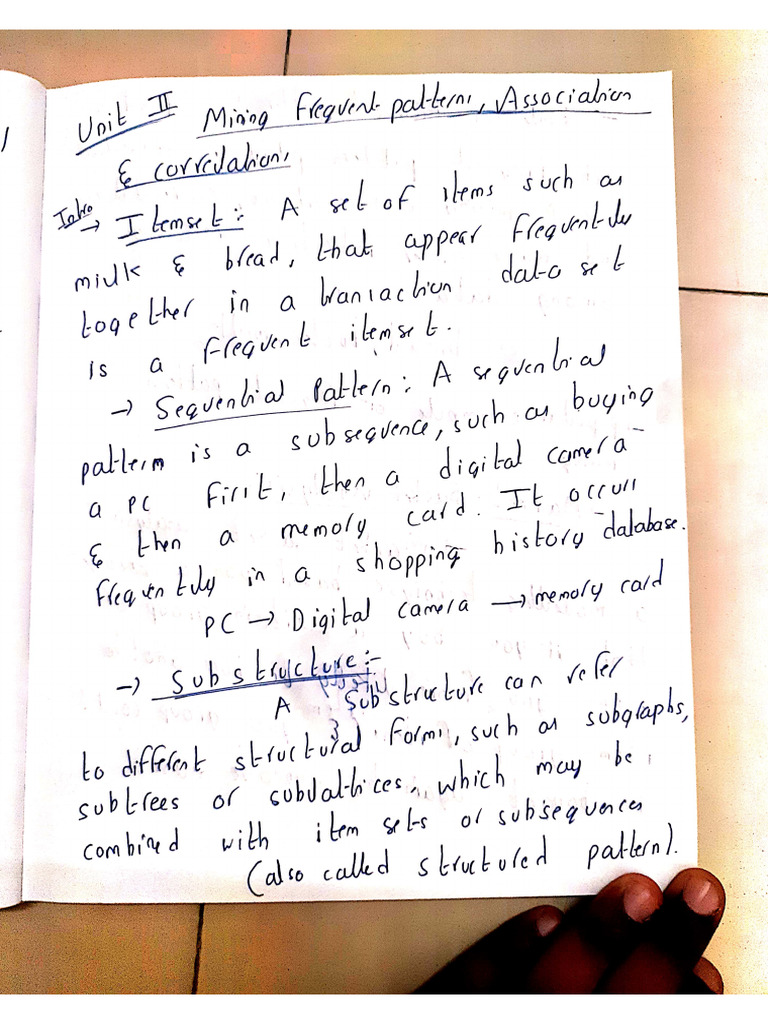 Unit II Mining Frequent patterns, Association
& correlations
Intro → Itemset: A set of items such as
milk & bread, that appear frequently
together in a transaction data set
is a frequent itemset.
→ Sequential Pattern: A sequential
pattern is a subsequence, such as buying
a PC first, then a digital camera
& then a memory card. It occurs
frequently in a shopping history database.
PC → Digital camera → memory card
→ Substructure:-
A substructure can refer
to different structural forms, such as subgraphs,
subtrees or sublattices, which may be
combined with item sets or subsequences
(also called structured pattern).